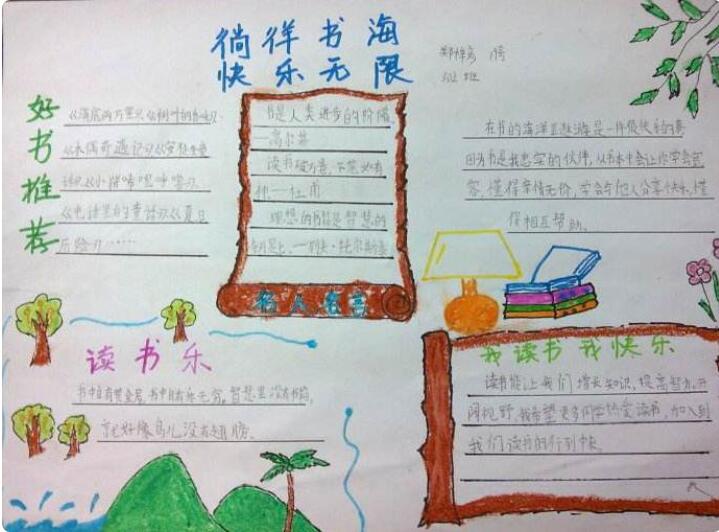 徜徉书海
快乐无限
好书推荐
《海底两万里》《树叶的香味》
《木偶奇遇记》《安徒生童
话》《小猪唏哩呼噜》
《电话里的童话》《夏日
历险》……
书是人类进步的阶梯
—高尔基
读书破万卷，下笔如有
神—杜甫
理想的书籍是智慧的
钥匙上—列夫·托尔斯泰
名人名言
二班
在书的海洋里遨游是一件很快乐的事
因为书是我忠实的伙伴，从书本中会让你学会宽
容，懂得亲情无价，学会与他人分享快乐，懂
得相互帮助。
读书乐
书中自有黄金屋，书中自有乐无穷，智慧里没有书籍，
就好像鸟儿没有翅膀。
我读书我快乐
读书能让我们增长知识，提高智力，开
阔视野，我希望更多同学热爱读书，加入到
我们读书的行列中来。